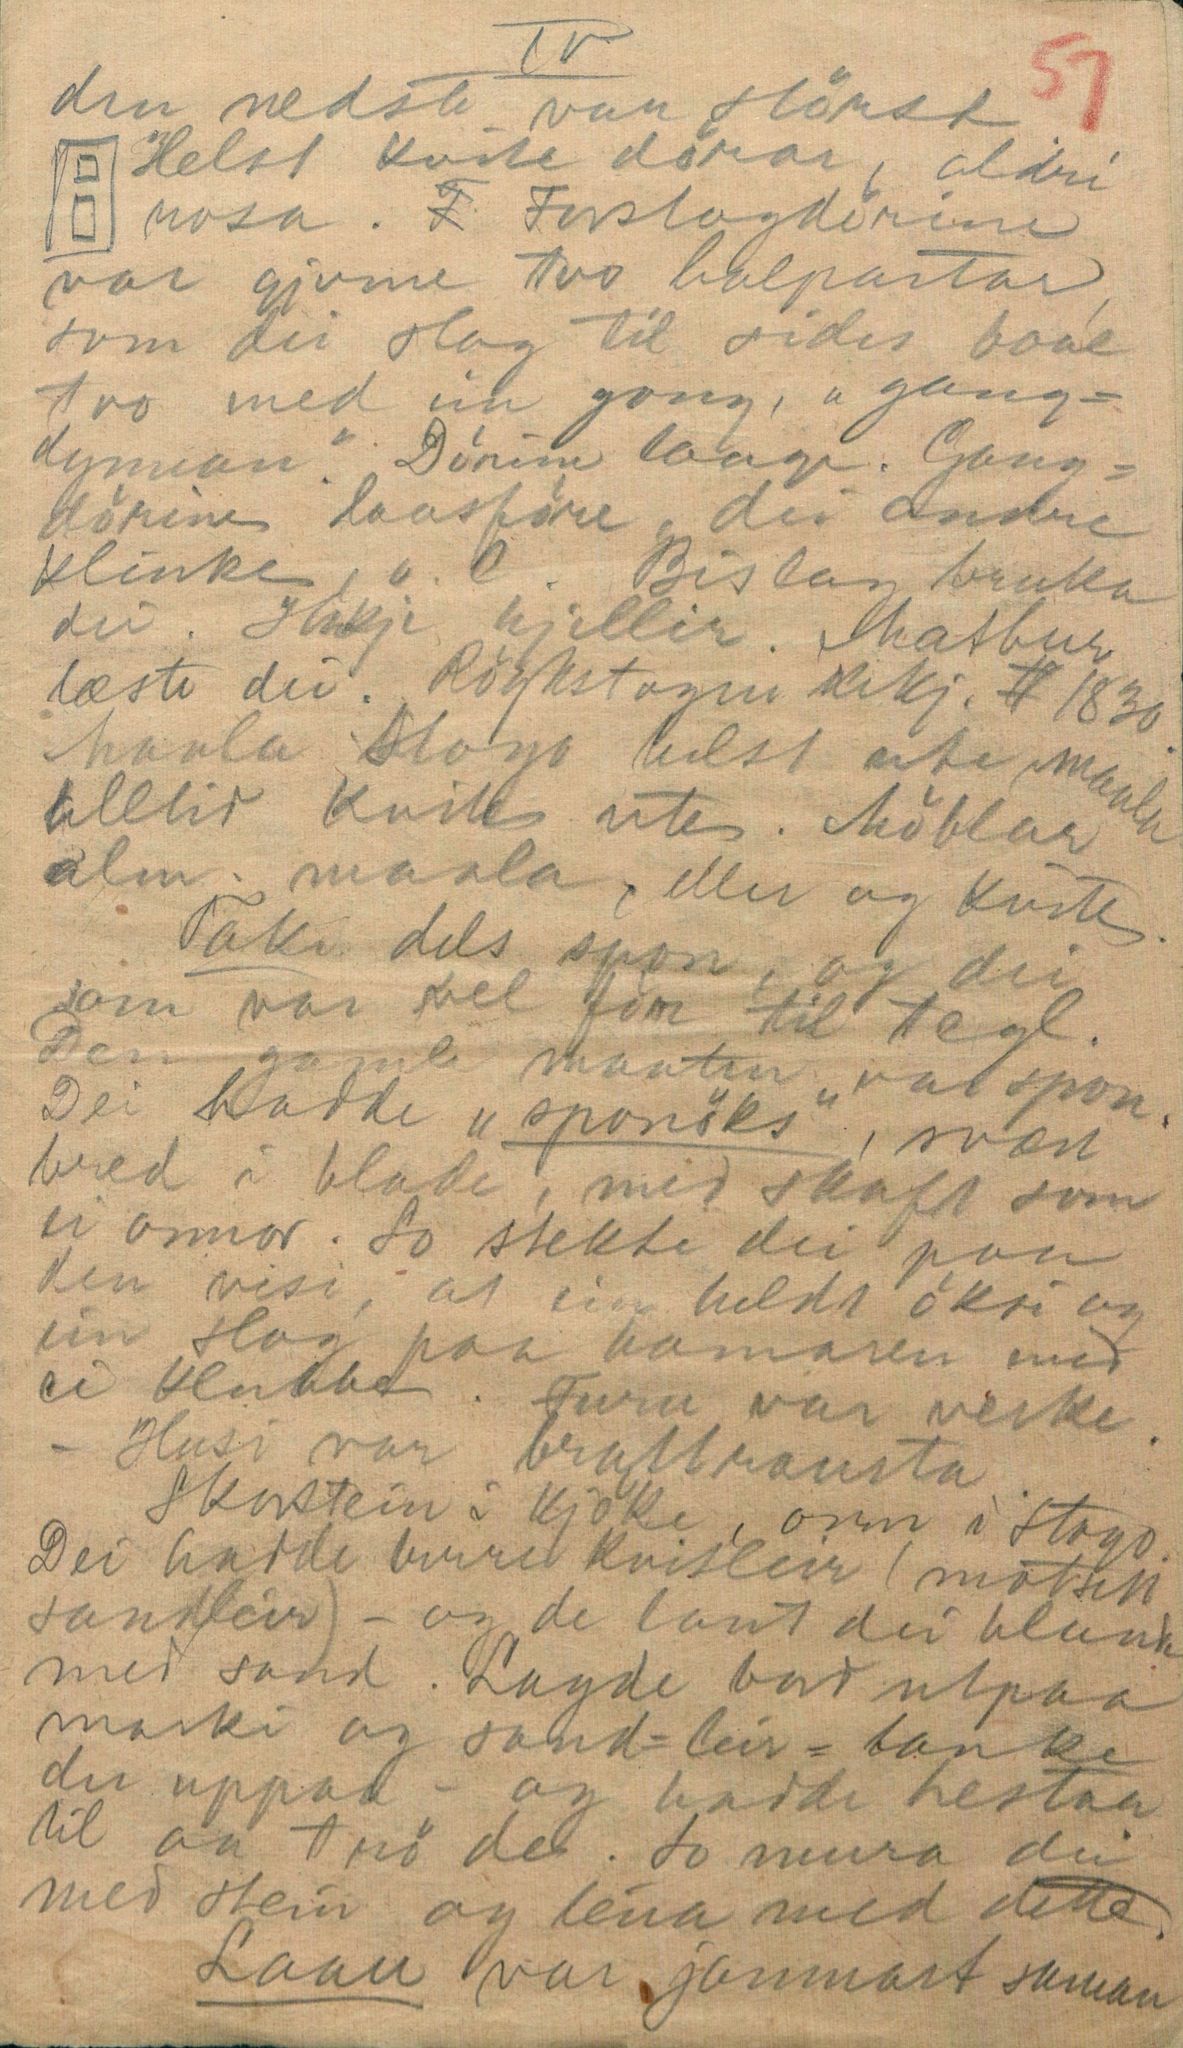 IV
57
den nedste var störst
Helst kvite dörar, aldri
rosa. F. Forstogdörine
var gjorne tvo halpartar,
som dei slog til sides baae
tvo med ein gong, "gang=
dynnan". Dörine laage. Gang=
dörine laasföre, dei andre
klinke, o. l. Bislag bruka
dei. Ikkje kjellir. Matbur
læste dei. Röykstogur ikkj. 1830.
Maala stogo helst ute maala
alltid kvite utes. Möblar
alm. maala, eller og kvite.
Taki dels spon, og dei
som var vel för til tegl.
Den gamle maaten var spon.
Dei hadde "sponöks", svær
bred i blade, med skaft som
ei onnor. So stekte dei paa
den visi, at ein heldt öksi og
ein slog paa hamaren med
ei klubbe. Furu var verke.
- Husi var brattrausta.
Skorstein i kjöke, omn i stogo.
Dei hadde berre kvitleir (motsett
sandleir) - og de laut dei blanda
med sand. Lagde bord utpaa
marki og sand=leir=banke
der uppaa - og hadde hestar
til aa trö de. So mura dei
med stein og leira med dette.
Laan var jammart saman